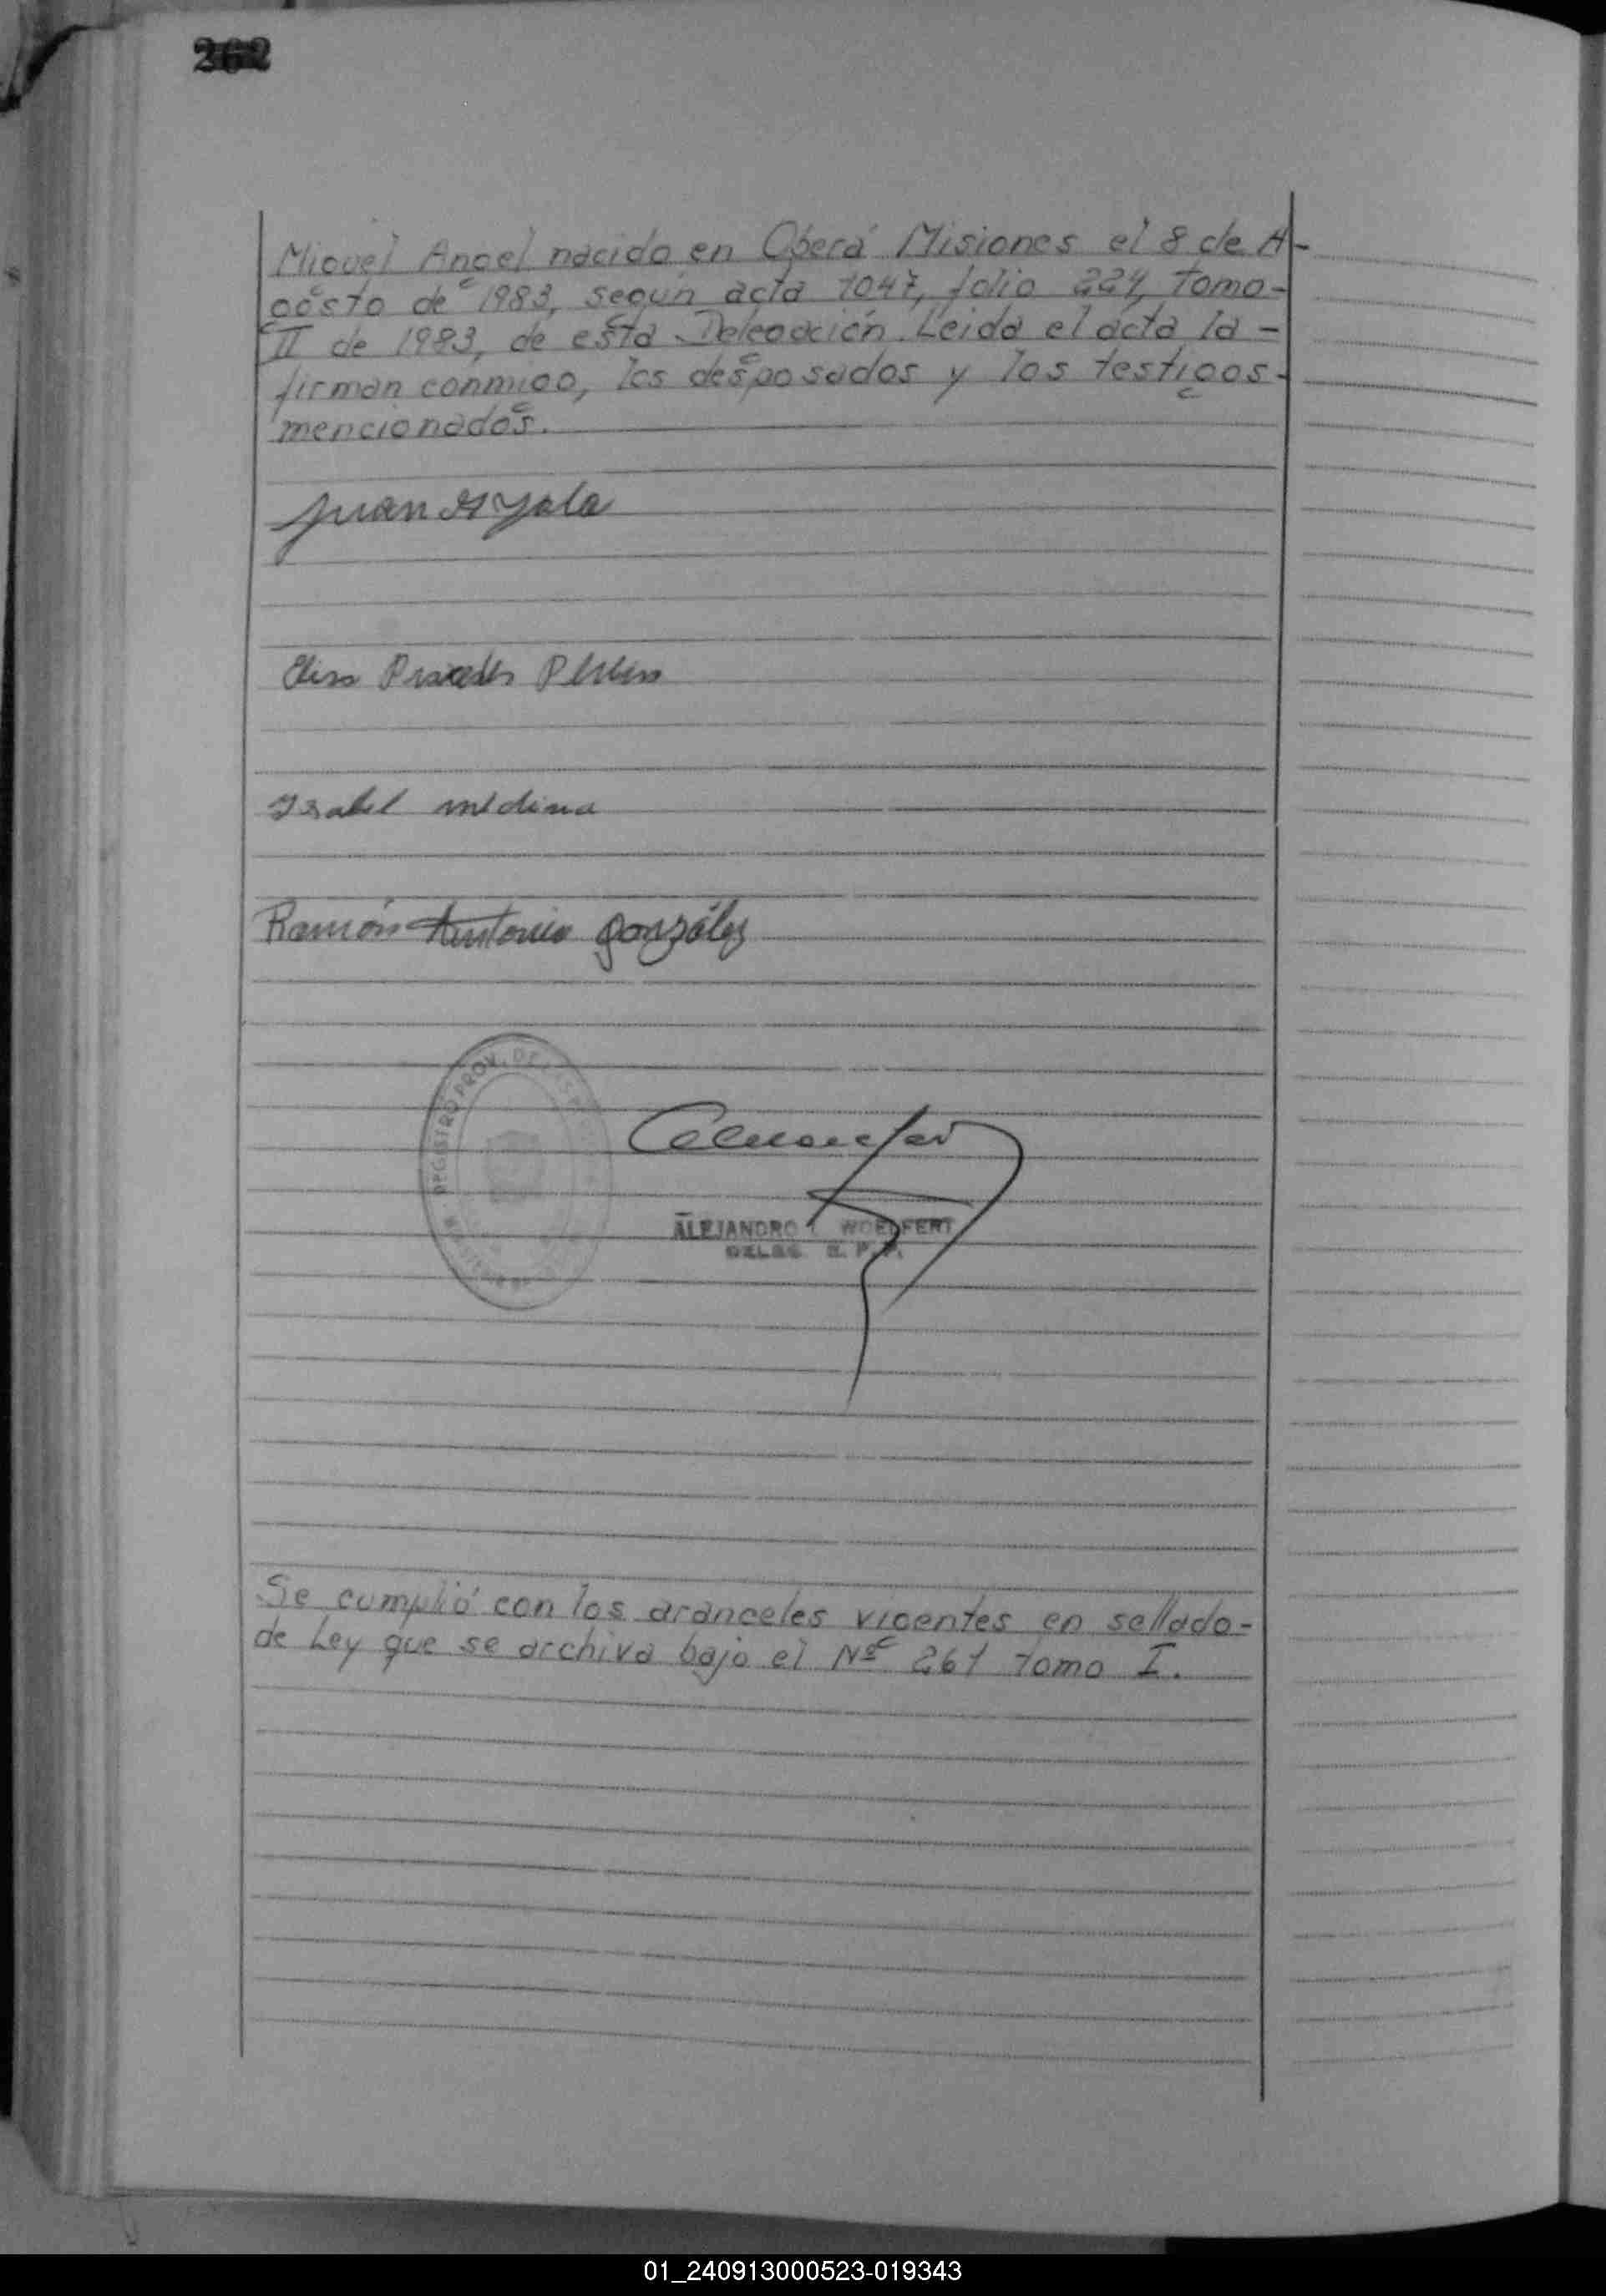 262
Miguel Angel nacido en Oberá Misiones el 8 de A-
gosto de 1983, según acta 1047, folio 224, tomo-
II de 1983, de esta Delegación. Leida el acta la -
firman conmigo, los desposados y los testigos-
mencionados.
Juan Ayala
Isabel medina
Ramón Antonio gonzález
REGISTRO PROV. DE LAS
ALEJANDRO WOELFERT
DELEG. R. P. P.
Se cumplió con los aranceles vigentes en sellado-
de Ley que se archiva bajo el Nº 261 tomo I.
01_240913000523-019343